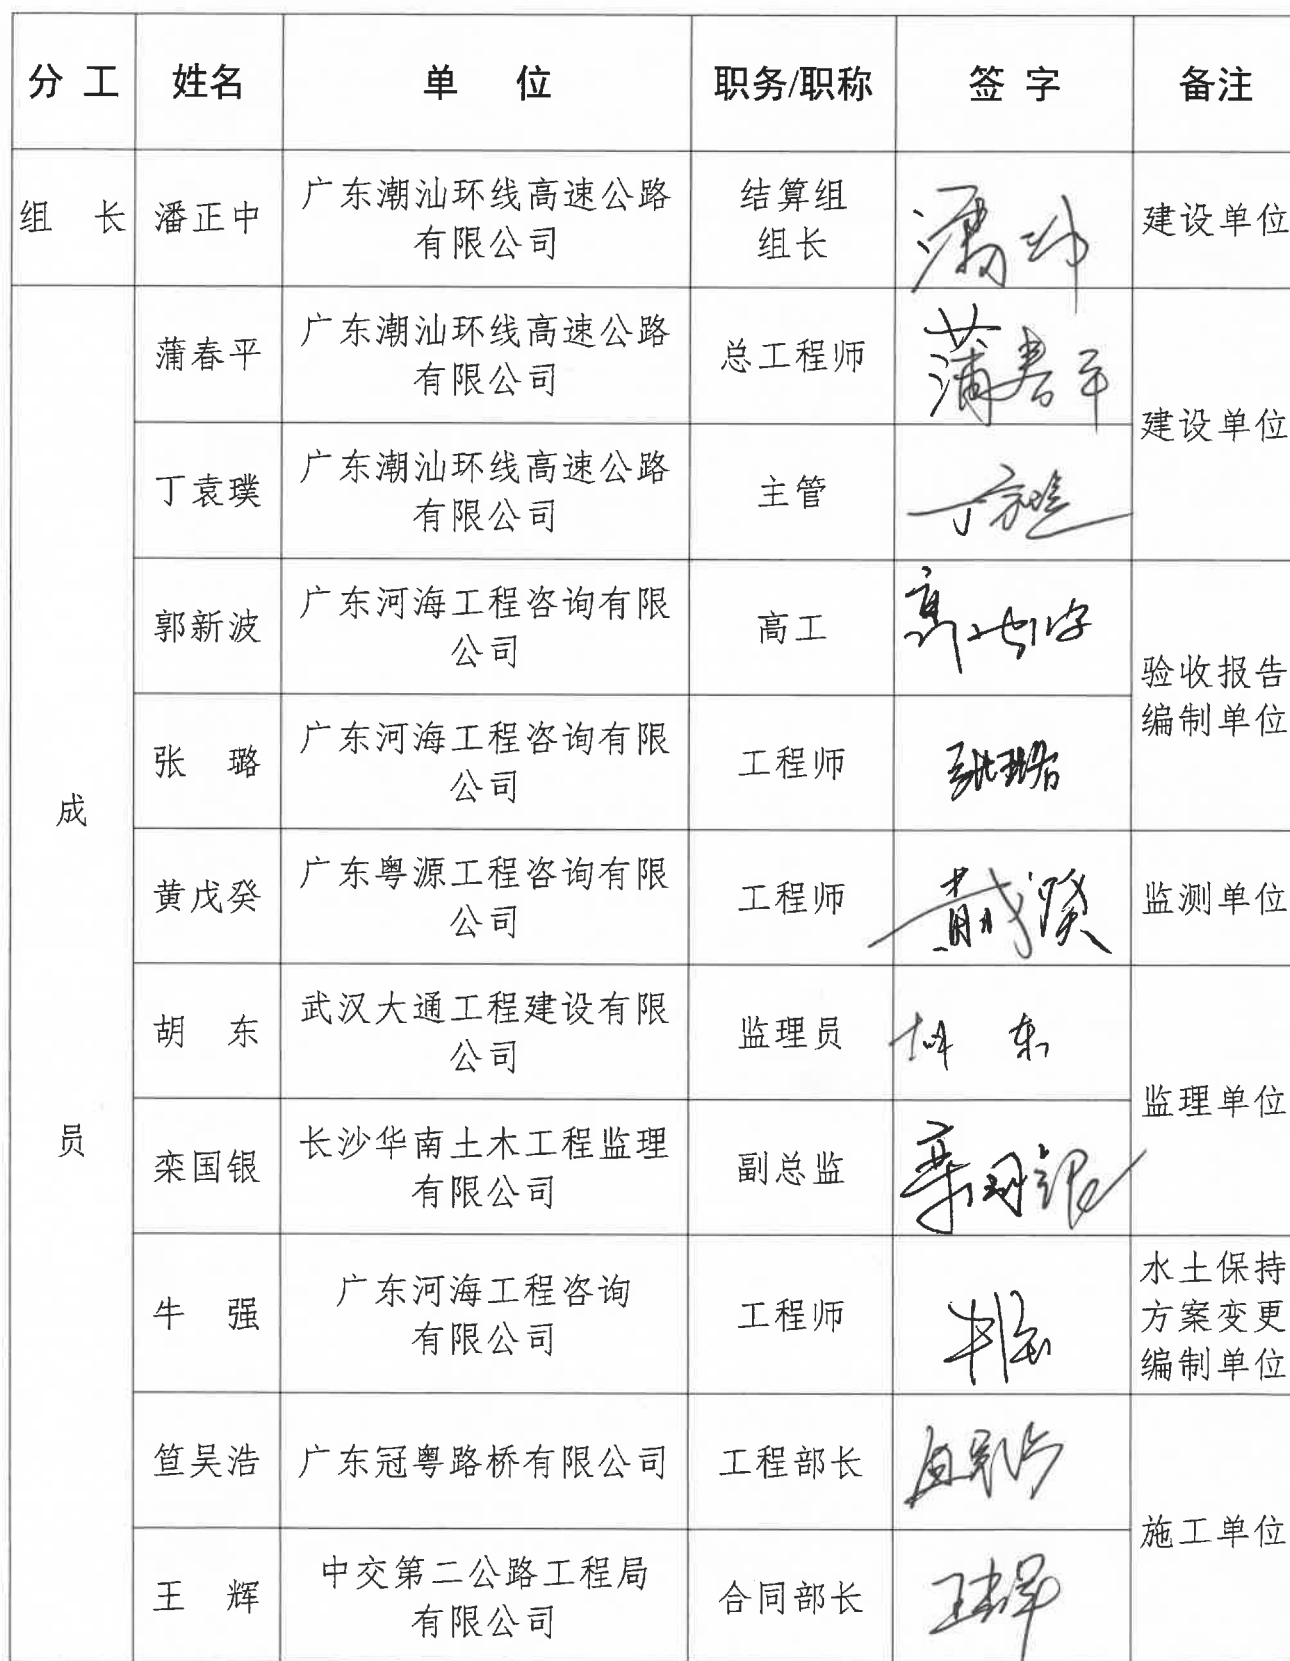 分 工 姓名 单 位 职务/职称 签 字 备注
组 长 潘正中 广东潮汕环线高速公路
有限公司 结算组
组长 建设单位
成
员
蒲春平 广东潮汕环线高速公路
有限公司 总工程师 蒲春平
建设单位
丁袁璞 广东潮汕环线高速公路
有限公司 主管
郭新波 广东河海工程咨询有限
公司 高工
验收报告
编制单位
张 璐 广东河海工程咨询有限
公司 工程师 张璐
黄戊癸 广东粤源工程咨询有限
公司 工程师 监测单位
胡 东 武汉大通工程建设有限
公司 监理员 胡 东
监理单位
栾国银 长沙华南土木工程监理
有限公司 副总监 栾国银
牛 强 广东河海工程咨询
有限公司 工程师 牛强
水土保持
方案变更
编制单位
笪吴浩 广东冠粤路桥有限公司 工程部长
施工单位
王 辉 中交第二公路工程局
有限公司 合同部长 王辉